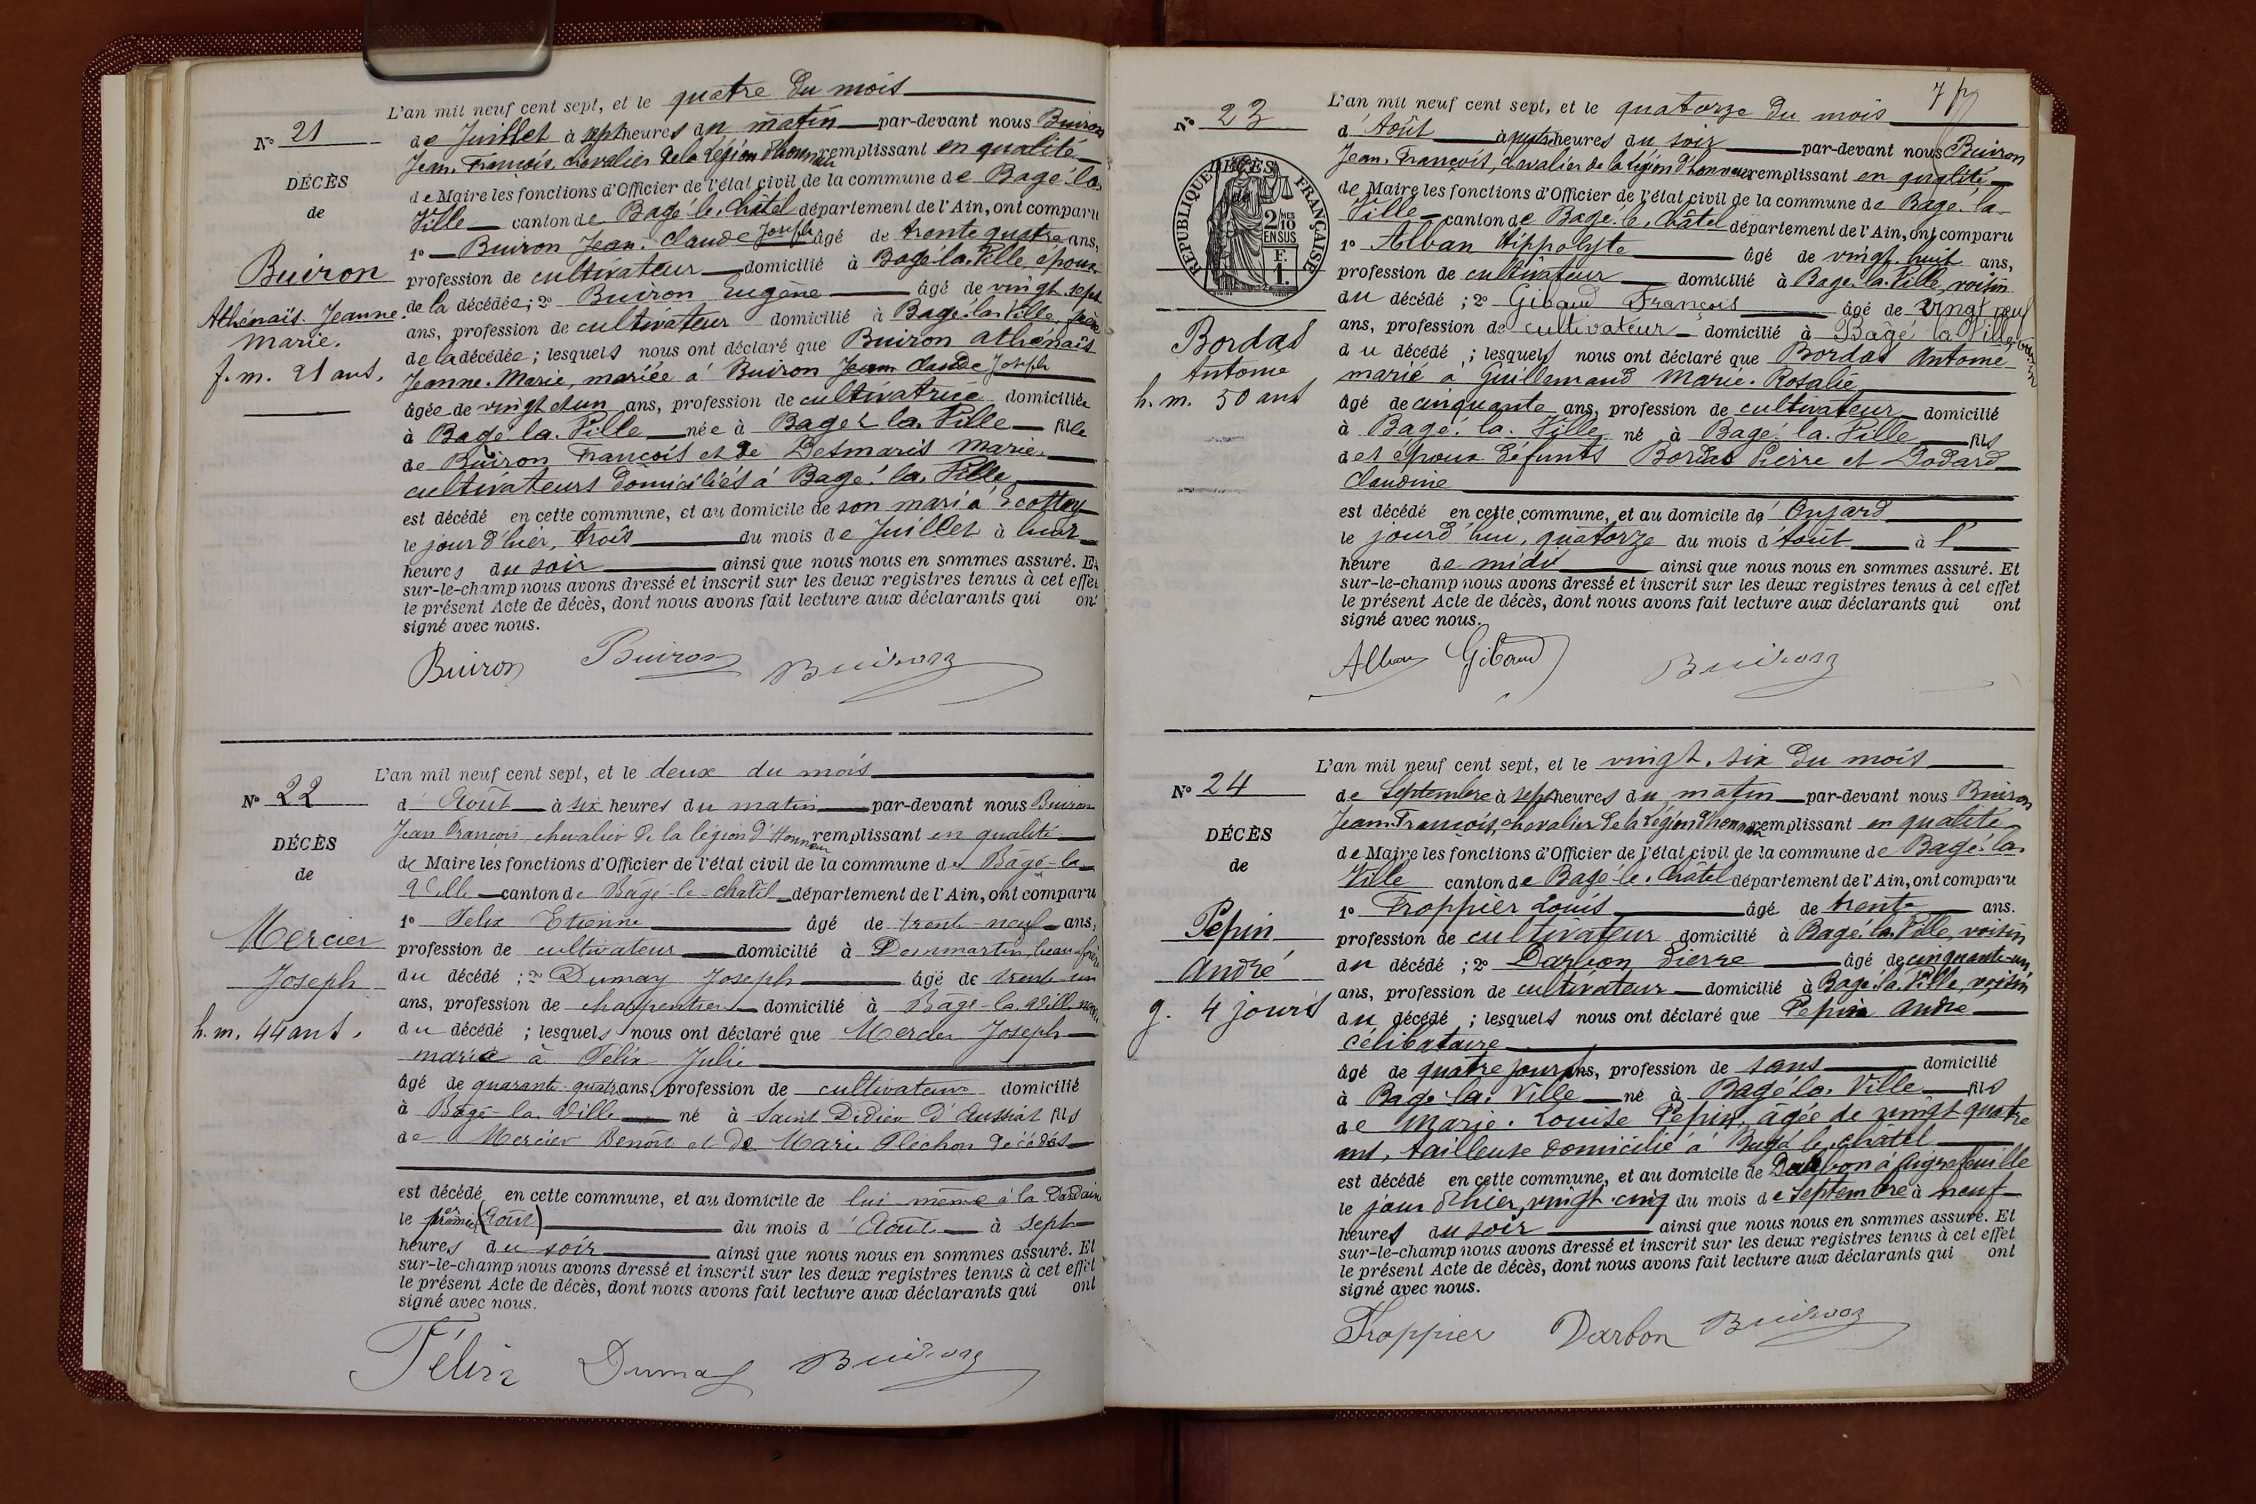 L'an mil neuf cent sept, et le quatre du mois
N° 21
de Juillet à sept heures du matin par-devant nous Buiron
Jean. François. chevalier de la Légion d'honneur remplissant en qualité
DÉCÈS
de Maire les fonctions d'Officier de l'état civil de la commune de Bagé. la.
de
Ville canton de Bagé. le. Châtel département de l'Ain, ont comparu
1° Buiron Jean. Claude Joseph âgé de trente quatre ans,
Buiron
profession de cultivateur domicilié à Bagé. la. Ville, époux
Athénaïs. Jeanne.
de la décédée ; 2° Buiron Eugène âgé de vingt. sept
Marie.
ans, profession de cultivateur domicilié à Bagé. la. Ville, frère
de la décédée ; lesquels nous ont déclaré que Buiron Athénaïs
f. m. 21 ans.
Jeanne. Marie, mariée à Buiron Jean Claude Joseph
âgée de vingt et un ans, profession de cultivatrice domiciliée
à Bagé. la. Ville née à Bagé. la. Ville fille
de Buiron François et de Desmaris Marie.
cultivateurs domiciliés à Bagé. la. Ville
est décédé en cette commune, et au domicile de son mari à
le jour d'hier, trois du mois de Juillet à huit
heures du soir ainsi que nous nous en sommes assuré. Et
sur-le-champ nous avons dressé et inscrit sur les deux registres tenus à cet effet
le présent Acte de décès, dont nous avons fait lecture aux déclarants qui ont
signé avec nous.
Buiron Buiron Buiron
L'an mil neuf cent sept, et le deux du mois
N° 22
d'Août à six heures du matin par-devant nous Buiron
Jean François, chevalier de la légion d'Honneur remplissant en qualité
DÉCÈS
de Maire les fonctions d'Officier de l'état civil de la commune de Bâgé-la-
de
Ville canton de Bâgé-le-Châtel département de l'Ain, ont comparu
1° Felix Etienne âgé de trente-neuf ans,
Mercier
profession de cultivateur domicilié à Dommartin, beau-frère
Joseph
du décédé ; 2° Dumay Joseph âgé de trente un
ans, profession de charpentier domicilié à Bagé-la-Ville,
h. m. 44 ans.
du décédé ; lesquels nous ont déclaré que Mercier Joseph
marié à Felix Julie
âgé de quarante-quatre ans, profession de cultivateur domicilié
à Bagé-la-Ville né à Saint Didier d'Aussiat fils
de Mercier Benoît et de Marie Pléchon décédés
est décédé en cette commune, et au domicile de lui même à la
le premier (Août) du mois d'Août à sept
heures du soir ainsi que nous nous en sommes assuré. Et
sur-le-champ nous avons dressé et inscrit sur les deux registres tenus à cet effet
le présent Acte de décès, dont nous avons fait lecture aux déclarants qui ont
signé avec nous.
Félix Dumay Buiron
L'an mil neuf cent sept, et le quatorze du mois
N° 23
d'Août à quatre heures du soir par-devant nous Buiron
Jean. François, chevalier de la Légion d'honneur remplissant en qualité
DÉCÈS
RÉPUBLIQUE FRANÇAISE
2/10 EN SUS
F. 1.
de Maire les fonctions d'Officier de l'état civil de la commune de Bagé. la-
Ville canton de Bagé. le. Châtel département de l'Ain, ont comparu
1° Alban Hippolyte âgé de vingt. huit ans,
profession de cultivateur domicilié à Bagé. la. Ville, voisin
du décédé ; 2° Gibaud François âgé de vingt neuf
ans, profession de cultivateur domicilié à Bâgé la Ville, voisin
Bordas
Antoine
h. m. 50 ans
du décédé ; lesquels nous ont déclaré que Bordas Antoine
marié à Guillemaud Marie. Rosalie
âgé de cinquante ans, profession de cultivateur domicilié
à Bagé. la. Ville né à Bagé. la. Ville fils
des époux défunts Bordas Pierre et Godard
Claudine
est décédé en cette commune, et au domicile de
le jourd'hui, quatorze du mois d'Août à l'
heure de midi ainsi que nous nous en sommes assuré. Et
sur-le-champ nous avons dressé et inscrit sur les deux registres tenus à cet effet
le présent Acte de décès, dont nous avons fait lecture aux déclarants qui ont
signé avec nous.
Alban Gibaud Buiron
L'an mil neuf cent sept, et le vingt. six du mois
N° 24
de Septembre à sept heures du matin par-devant nous Buiron
Jean. François, chevalier de la Légion d'honneur remplissant en qualité
DÉCÈS
de Maire les fonctions d'Officier de l'état civil de la commune de Bagé. la.
de
Ville canton de Bagé. le. Châtel département de l'Ain, ont comparu
1° Froppier Louis âgé de trente ans.
Pépin
profession de cultivateur domicilié à Bagé. la. Ville, voisin
André
du décédé ; 2° Darbon Pierre âgé de cinquante-un
ans, profession de cultivateur domicilié à Bagé. la Ville, voisin
g. 4 jours
du décédé ; lesquels nous ont déclaré que Pépin André
célibataire
âgé de quatre jours ans, profession de sans domicilié
à Bagé. la. Ville né à Bagé. la. Ville fils
de Marie. Louise Pépin, âgée de vingt quatre
ans, tailleuse domicilié à Bagé. le. châtel
est décédé en cette commune, et au domicile de Darbon à Aigrefeuille
le jour d'hier, vingt. cinq du mois de Septembre à neuf
heures du soir ainsi que nous nous en sommes assuré. Et
sur-le-champ nous avons dressé et inscrit sur les deux registres tenus à cet effet
le présent Acte de décès, dont nous avons fait lecture aux déclarants qui ont
signé avec nous.
Froppier Darbon Buiron